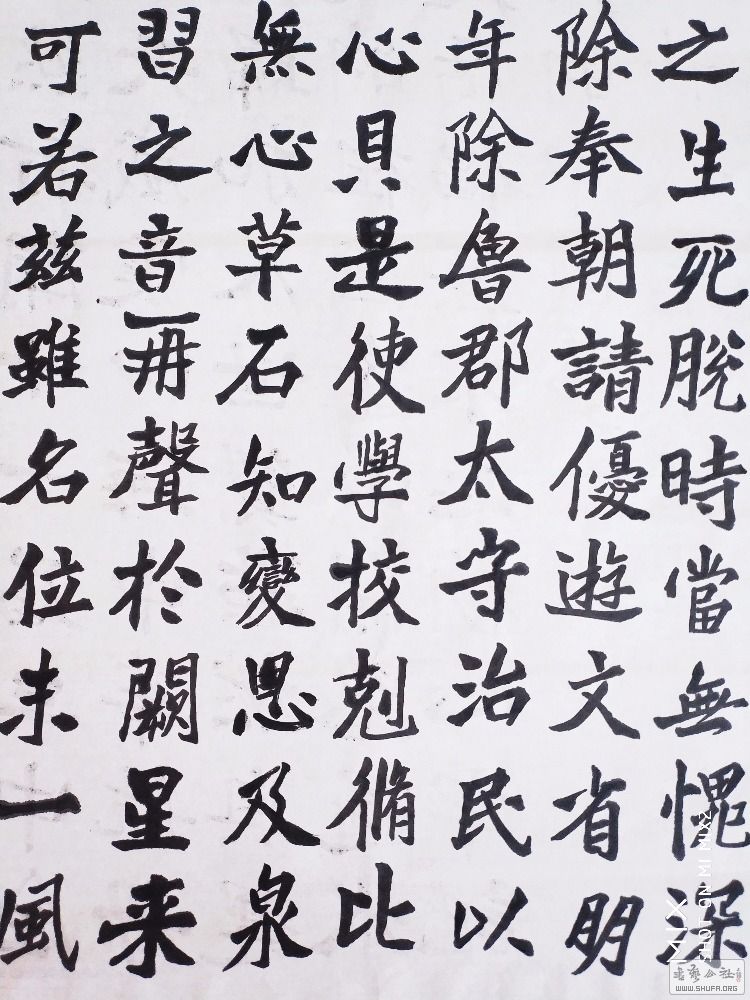 之生死脫時當無愧深
除奉朝請優遊文省明
年除魯郡太守治民以
心具是使學挍剋脩比
無心草石知變恩及泉
習之音一冊聲於闕星来
可若茲雖名位未一風
MIX
SHOT ON MI MIX2
WWW.SHUFA.ORG